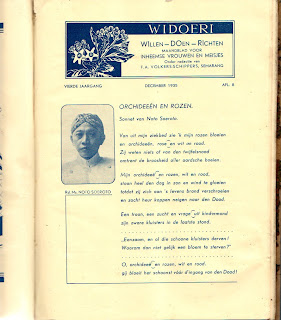 WIDOERI
WILLEN – DOEN – RICHTEN
MAANDBLAD VOOR
INHEEMSE VROUWEN EN MEISJES
Onder redactie van
VOLKERS-SCHIPPERS, SEMARANG
VIERDE JAARGANG DECEMBER 1935 AFL. 8
ORCHIDEEËN EN ROZEN.
Sonnet van Noto Soeroto.
Van uit mijn ziekbed zie 'k mijn rozen bloeien
en orchideeën, rose en wit en rood.
Zij weten niets of van den twijfelsnood
ontkent de broosheid aller aardsche boeien.
Mijn orchideeën en rozen, wit en rood,
staan heel den dag in zon en wind te gloeien
totdat zij zich van 's levens brand verschroeien
en zacht heur koppen neigen naar den Dood.
Een traan, een zucht en vrage uit kindermond
zijn zware kluisters in de laatste stond.
„Eenzaam, en al die schoone kluisters derven!
Waarom dan niet gelijk een bloem te sterven?"
O, orchideeën en rozen, wit en rood,
gij bloeit het schoonst vóór d'ingang van den Dood!
NOTO SOEROTO